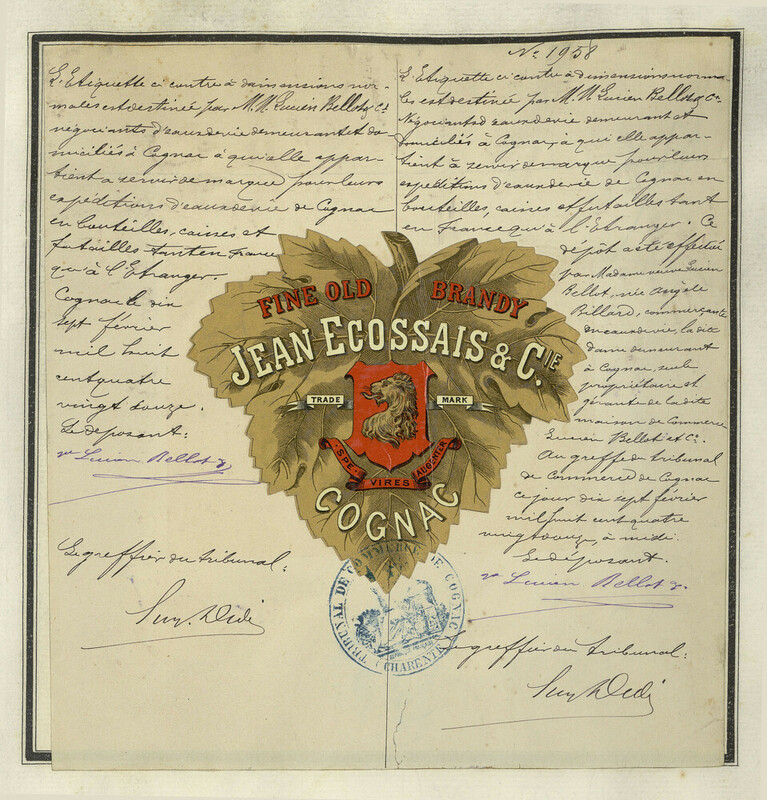 No 1958
L'Etiquette ci contre à dimensions nor-
males est destinée par M.M. Lucien Bellot & Cie
négociants d'eau de vie demeurant et do-
miciliés à Cognac à qui elle appar-
tient à servir de marque pour leurs
expéditions d'eau de vie de Cognac
en bouteilles, caisses et
futailles tant en France
qu'à l'Etranger.
Cognac le dix
sept février
mil huit
cent quatre
vingt douze.
Le déposant:
ve Lucien Bellot &
Le greffier du tribunal:
L'Etiquette ci contre à dimensions norma-
les est destinée par M.M. Lucien Bellot & Cie
Négociants d'eau de vie demeurant et
domiciliés à Cognac, à qui elle appar-
tient à servir de marque pour leurs
expéditions d'eau de vie de Cognac en
bouteilles, caisses et futailles tant
en France qu'à l'Etranger. Ce
dépôt a été effectué
par Madame veuve Lucien
Bellot, née Angèle
Billard, commerçante
en eau de vie, la dite
dame demeurant
à Cognac, seule
propriétaire et
gérante de la dite
maison de Commerce
Lucien Bellot et Cie.
Au greffe du tribunal
de Commerce de Cognac
ce jour dix sept février
mil huit cent quatre
vingt douze, à midi.
Le déposant.
ve Lucien Bellot &
Le greffier du tribunal:
FINE OLD BRANDY
JEAN ECOSSAIS & CIE
TRADE MARK
SPE VIRES
COGNAC
TRIBUNAL DE COMMERCE DE COGNAC
(CHARENTE)